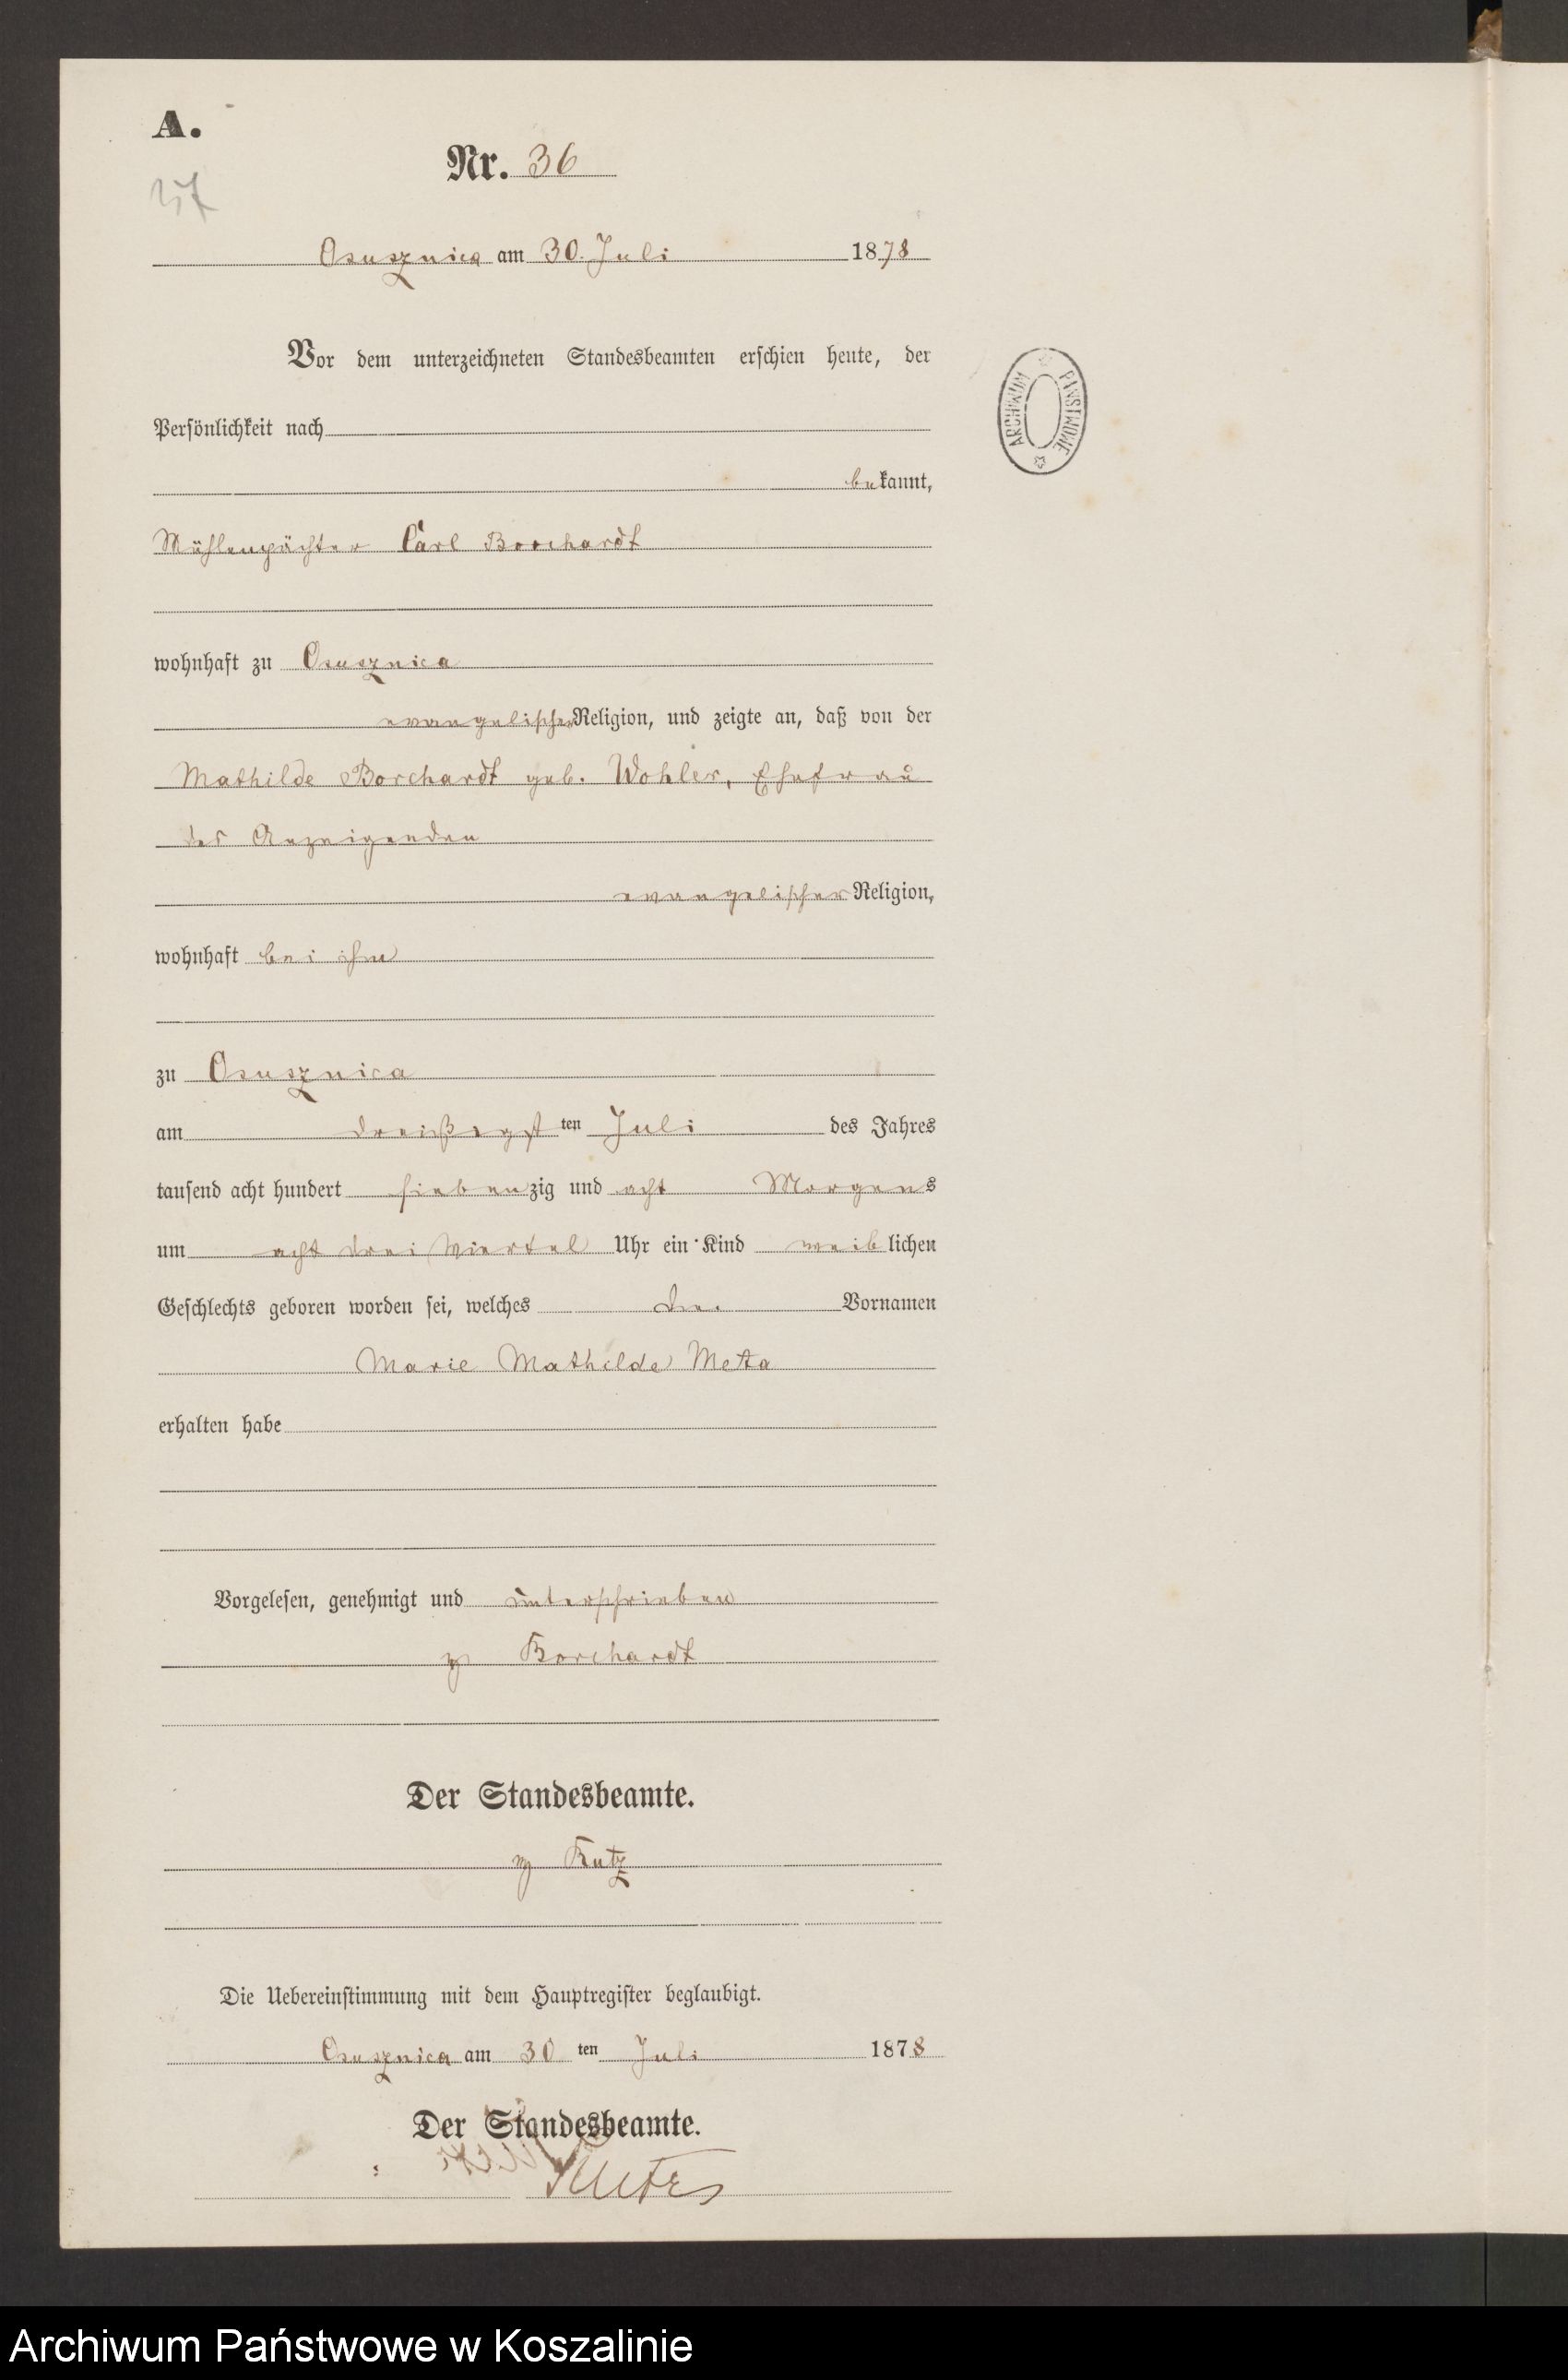 A.
Nr. 36
37
Osusznica am 30. Juli 1878
ARCHIWUM PAŃSTWOWE
Vor dem unterzeichneten Standesbeamten erschien heute, der
Persönlichkeit nach
bekannt,
Mühlenpächter Carl Borchardt
wohnhaft zu Osusznica
evangelischer Religion, und zeigte an, daß von der
Mathilde Borchardt geb. Wohler, Ehefrau
des Anzeigenden
evangelischer Religion,
wohnhaft bei ihm
zu Osusznica
am dreißigsten Juli des Jahres
tausend acht hundert siebenzig und acht Morgens
um acht drei Viertel Uhr ein Kind weiblichen
Geschlechts geboren worden sei, welches die Vornamen
Marie Mathilde Meta
erhalten habe
Vorgelesen, genehmigt und unterschrieben
gz Borchardt
Der Standesbeamte.
gz Kutz
Die Uebereinstimmung mit dem Hauptregister beglaubigt.
Osusznica am 30 ten Juli 1878
Der Standesbeamte.
Kutz
Archiwum Państwowe w Koszalinie